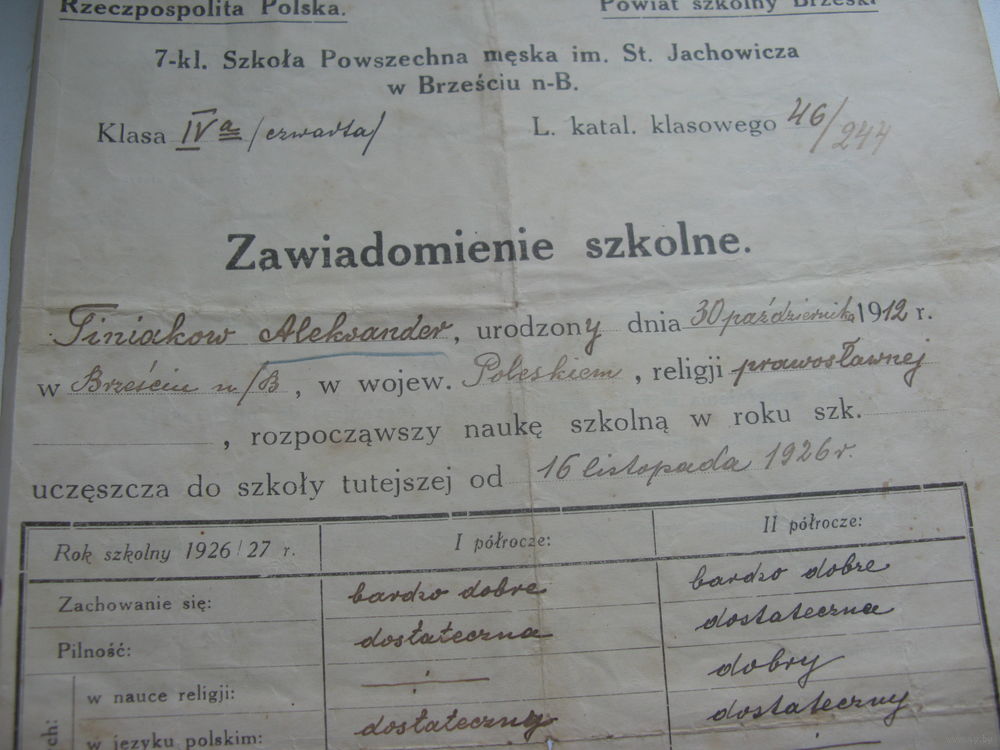 Rzeczpospolita Polska.
Powiat szkolny Brzeski
7-kl. Szkoła Powszechna męska im. St. Jachowicza
w Brześciu n-B.
Klasa IVa /czwarta/
L. katal. klasowego 46/244
Zawiadomienie szkolne.
Tiniakow Aleksander, urodzony dnia 30 października 1912 r.
w Brześciu n/B, w wojew. Poleskiem, religji prawosławnej
, rozpocząwszy naukę szkolną w roku szk.
uczęszcza do szkoły tutejszej od 16 listopada 1926 r.
Rok szkolny 1926/27 r. I półrocze: II półrocze:
Zachowanie się: bardzo dobre bardzo dobre
Pilność: dostateczna dostateczna
w nauce religji: dobry
w języku polskim: dostateczny dostateczny